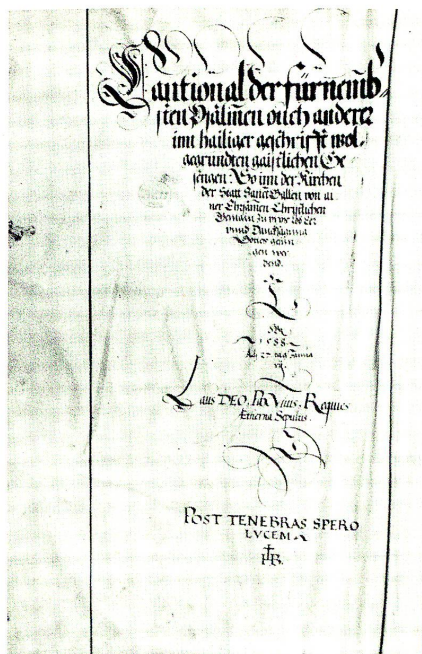 Cantional der fürnemb
sten Psalmen ouch anderer
inn hailiger geschrifft wol
gegrundten gaistlichen Ge
sengen So inn der Kirchen
der Statt Sanct Gallen von ai
ner Ehrsamen Christlichen
Gemain zu
unnd Dancksagung
Gottes
gen wer
dend.
1588
27 tag
Laus DEO, Requies
Ætherna Sepultis.
POST TENEBRAS SPERO
LVCEM
HB.